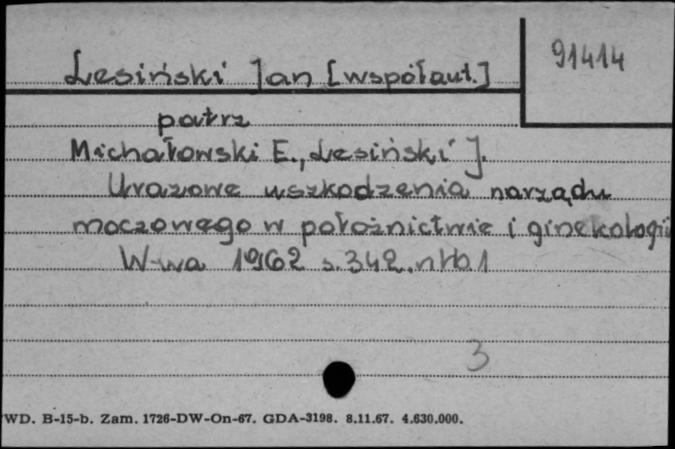 91414
Lesiński Jan [współaut.]
patrz
Michałowski E., Lesiński J.
Urazowe uszkodzenia narządu
moczowego w położnictwie i ginekologii
W-wa 1962 s. 342. nlb. 1
3
WD. B-15-b. Zam. 1726-DW-On-67. GDA-3198. 8.11.67. 4.630.000.